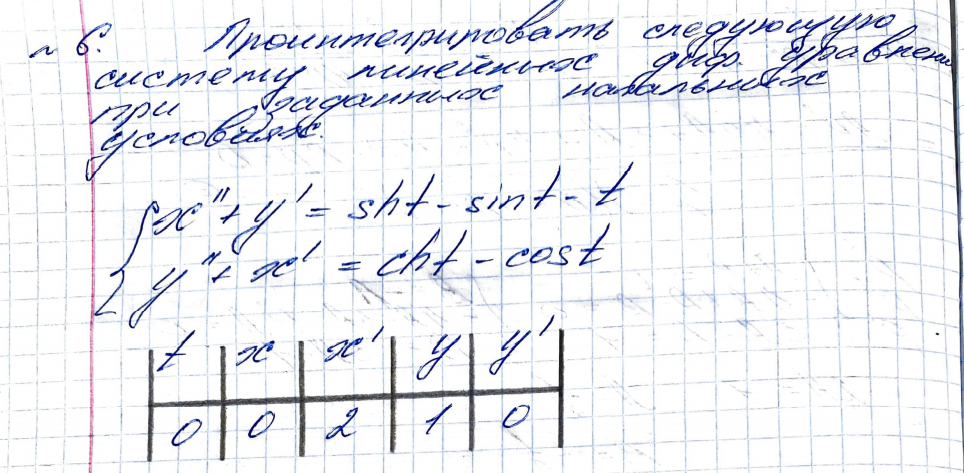 № 6. Проинтегрировать следующую
систему линейных диф. уравнени
при заданных начальных
условиях.
x'' + y' = sht - sint - t
y'' + x' = cht - cost
t x x' y y'
0 0 2 1 0